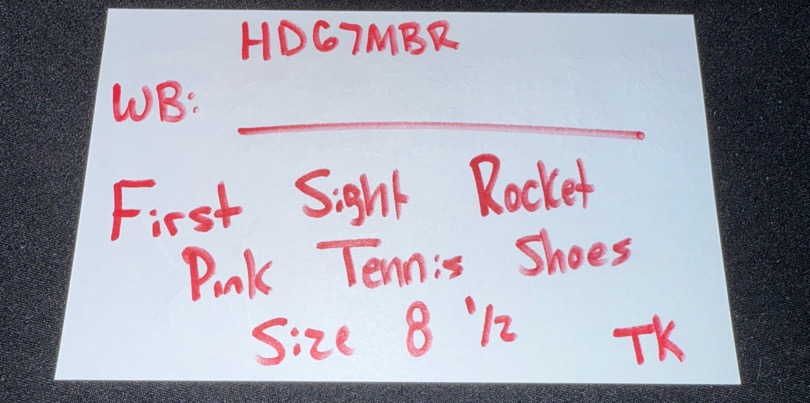 HDG7MBR
WB:
First Sight Rocket
Pink Tennis Shoes
Size 8 1/2
TK